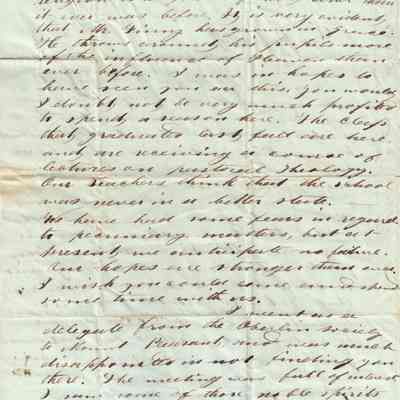 it ever was before. It is very evident
that Mr. Finny has grown in grace.
He throws around his pupils more
of the influence of Heaven than
ever before. I was in hopes to
have seen you ere this, you would
I doubt not be very much profited
to spend a season here. The Class
that graduated last fall are here
and are receiving a course of
lectures on pastoral Theology.
Our teachers think that the school
was never in a better state.
We have had some fears in regard
to pecuniary matters, but at
present we anticipate no failure.
Our hopes are stronger than ever.
I wish you could come and spend
some time with us.
I went as a
delegate from the Oberlin society
to Mount Pleasant, and was much
disappointed in not finding you
there. The meeting was full of interest
I saw some of those noble spirits